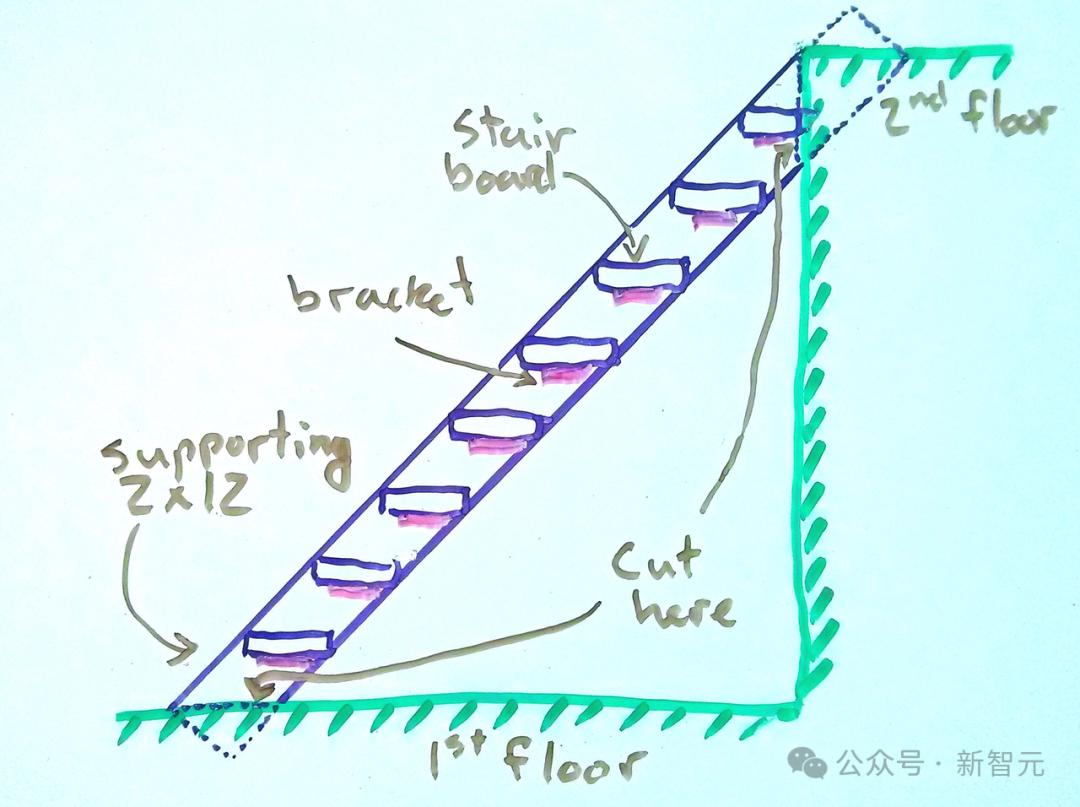 stair
board
2nd floor
bracket
supporting
2x12
Cut
here
1st floor
公众号 · 新智元